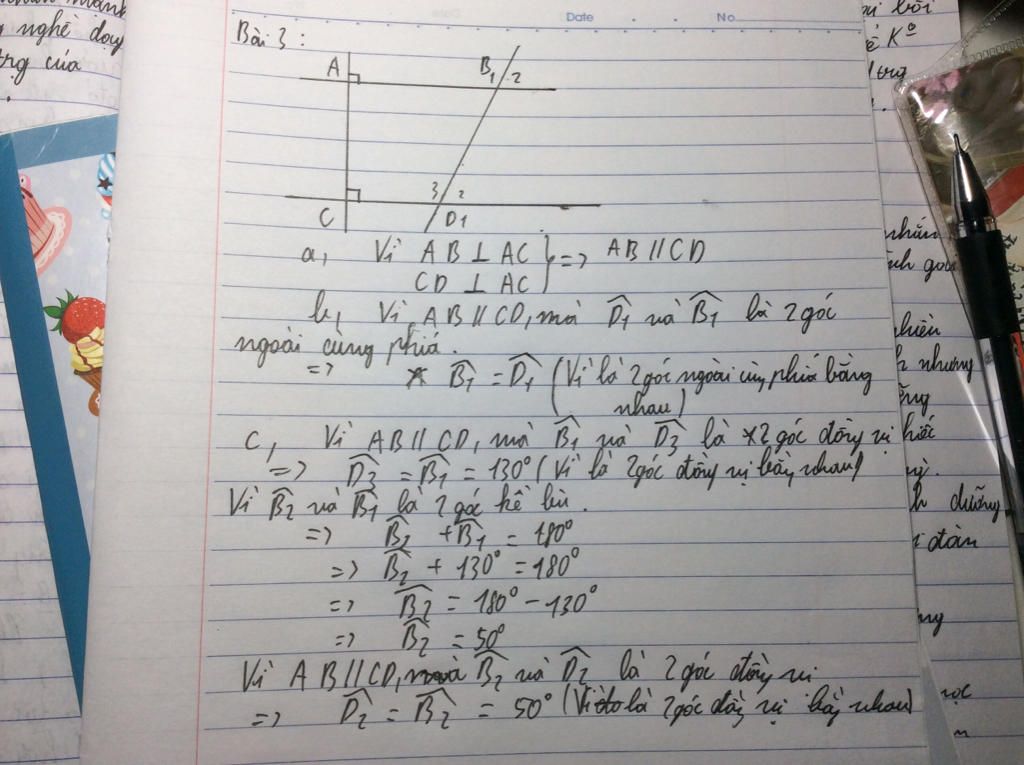 mành
nghề dạy
của
Date
No
Bài 3 :
A
B
1
2
3
2
C
D
1
a, Vì AB ⊥ AC
CD ⊥ AC } => AB // CD
b, Vì AB // CD, mà D̂1 và B̂1 là 2 góc
ngoài cùng phía.
=> B̂1 = D̂1 (Vì là 2 góc ngoài cùng phía bằng
nhau)
c, Vì AB // CD, mà B̂1 và D̂3 là 2 góc đồng vị
=> D̂3 = B̂1 = 130° (Vì là 2 góc đồng vị bằng nhau)
Vì B̂2 và B̂1 là 2 góc kề bù.
=> B̂2 + B̂1 = 180°
=> B̂2 + 130° = 180°
=> B̂2 = 180° - 130°
=> B̂2 = 50°
Vì AB // CD, mà B̂2 và D̂2 là 2 góc đồng vị
=> D̂2 = B̂2 = 50° (Vì là 2 góc đồng vị bằng nhau)
bởi
K°
nhưng
dưỡng
đàn